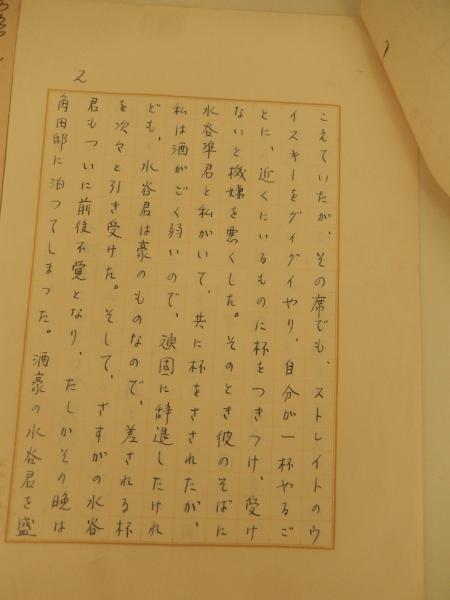 2
こえていたが、その席でも、ストレイトのウ
イスキーをグイグイやり、自分が一杯やるご
とに、近くにいるものに杯をつきつけ、受け
ないと機嫌を悪くした。そのとき彼のそばに
水谷準君と私がいて、共に杯をさされたが、
私は酒がごく弱いので、頑固に辞退したけれ
ども、水谷君は豪のものなので、差される杯
を次々と引き受けた。そして、さすがの水谷
君もついに前後不覚となり、たしかその晩は
角田邸に泊つてしまつた。酒豪の水谷君を盛